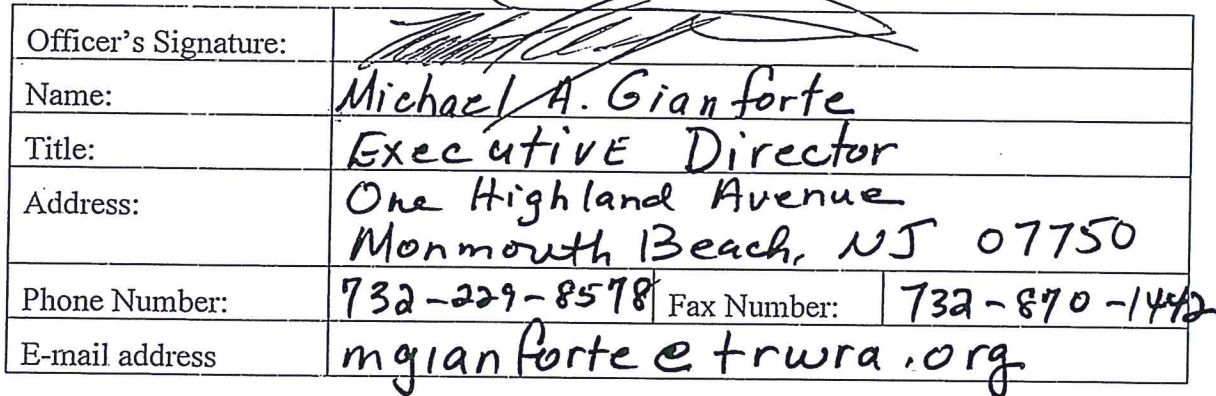 Officer's Signature:
Name: Michael A. Gianforte
Title: Executive Director
Address: One Highland Avenue
Monmouth Beach, NJ 07750
Phone Number: 732-229-8578 Fax Number: 732-870-1442
E-mail address mgianforte@trwra.org